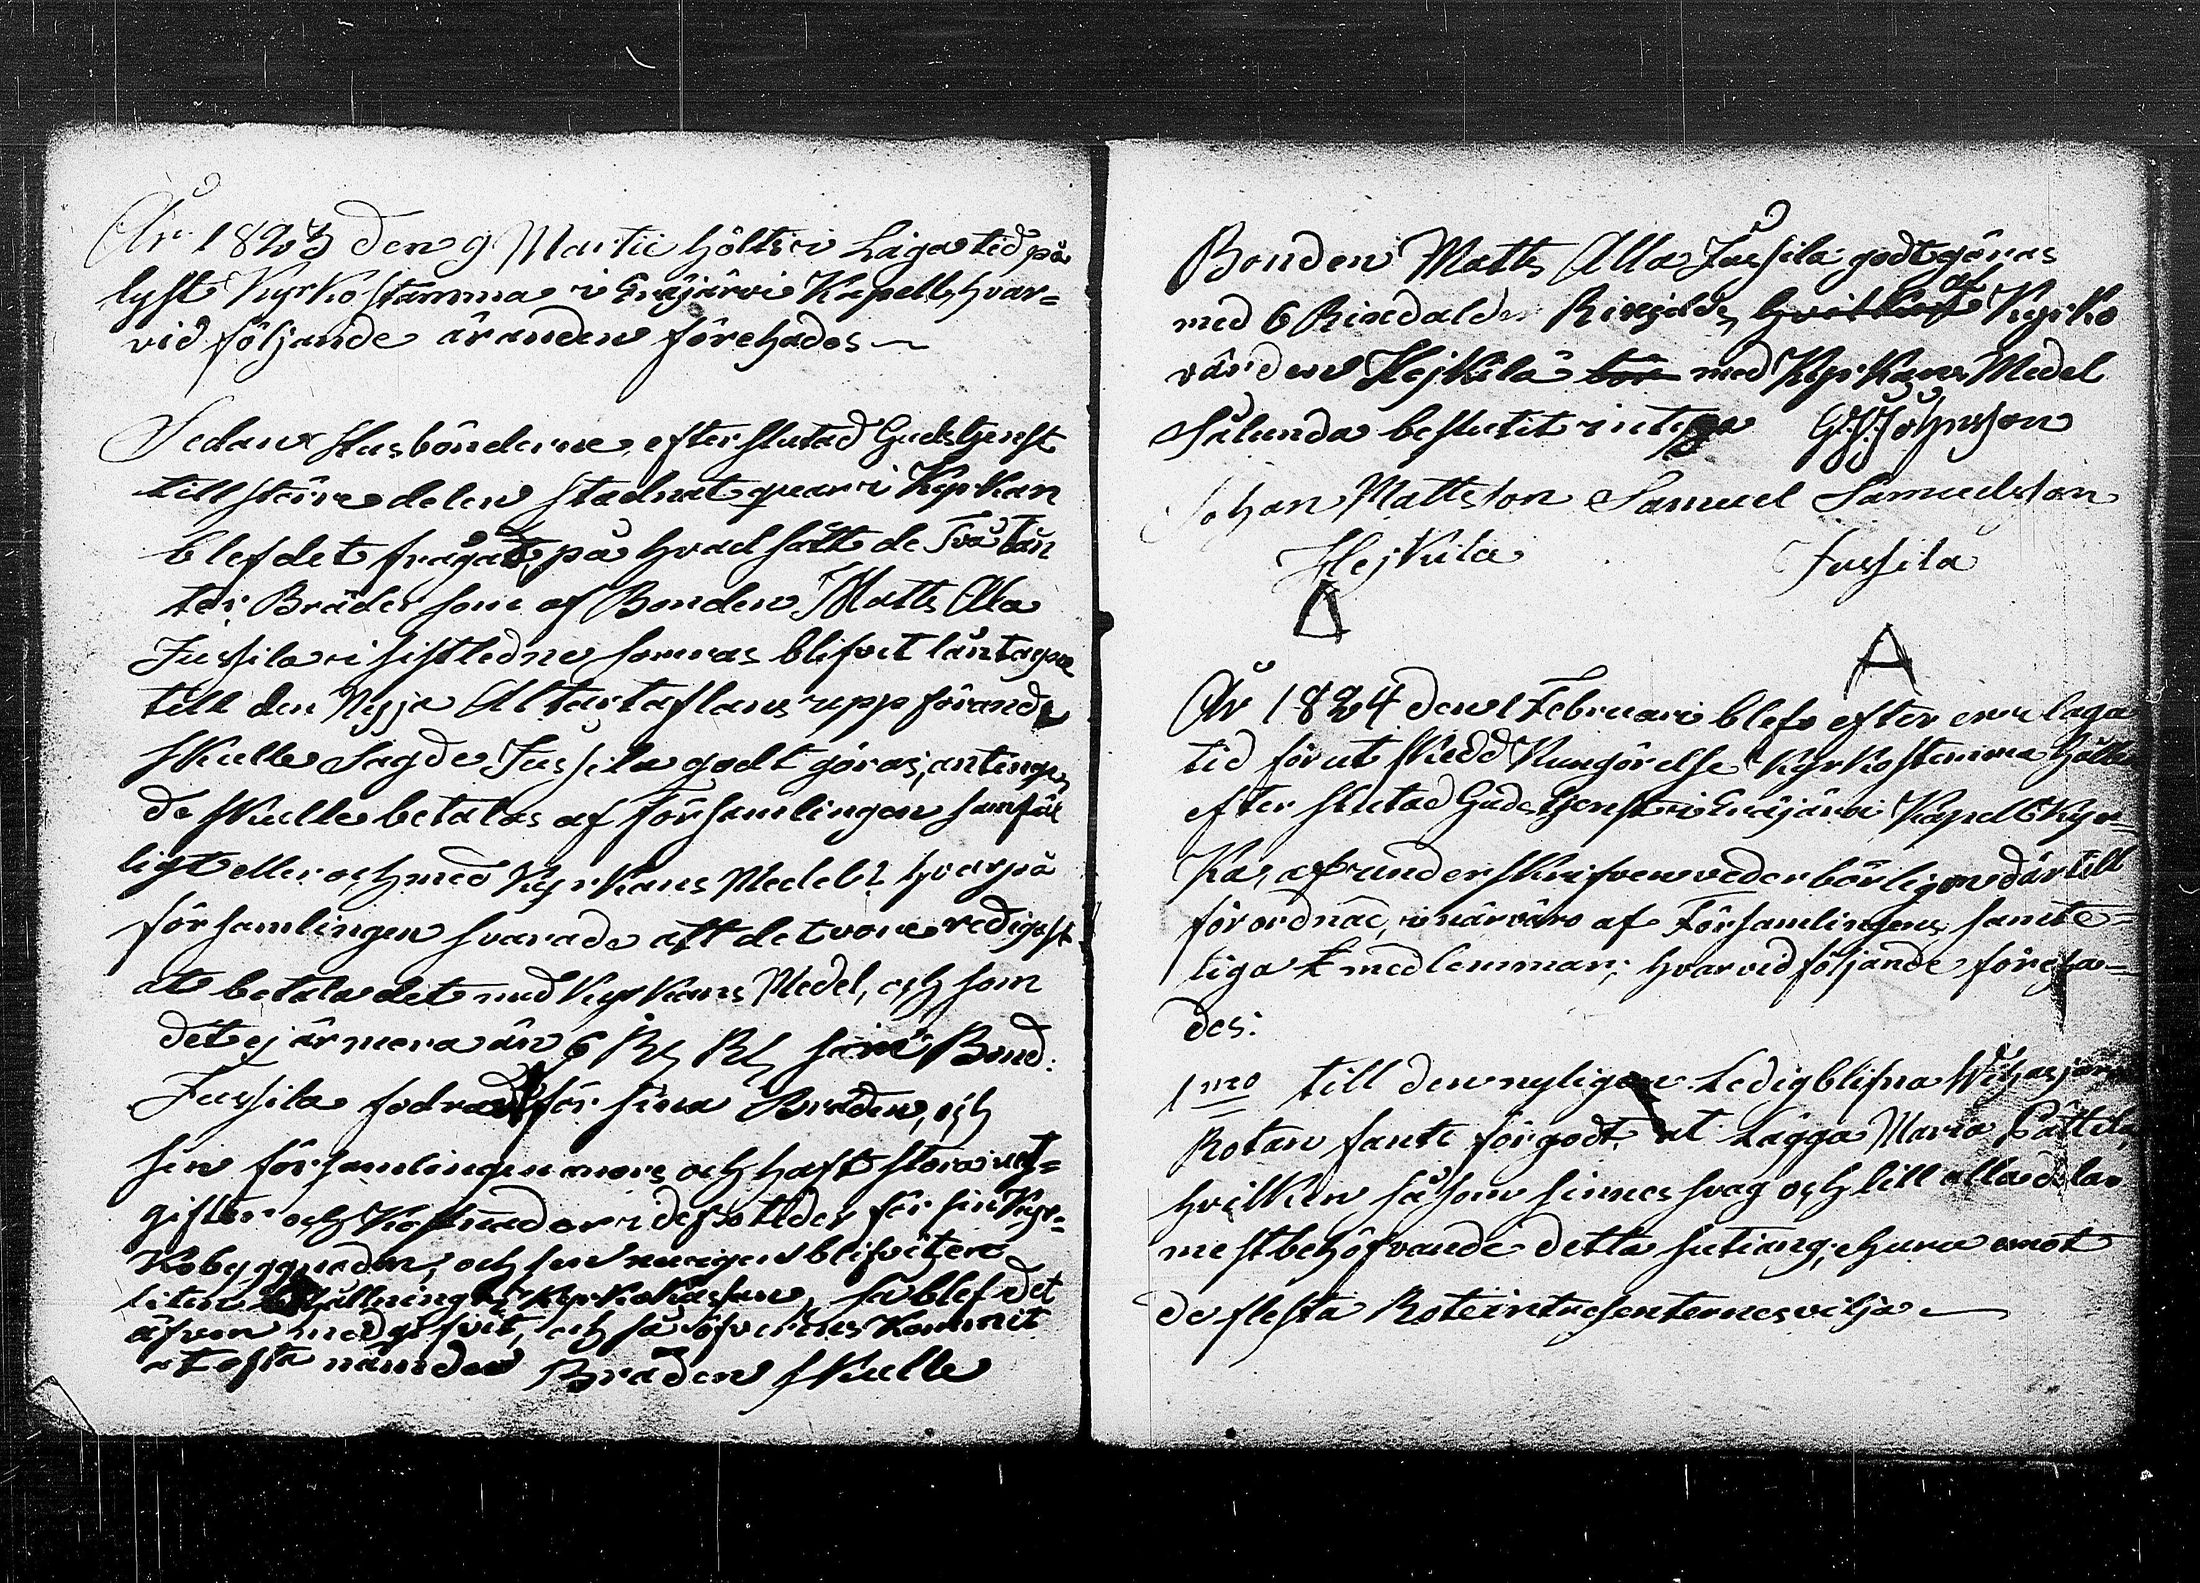 År 1823 den 9 Martii hölts i Laga tid på
lyst Kyrkostämma i Eräjärvi Kapell, hvar=
vid följande äranden förehades

Sedan Husbönderne efter slutad Gudstjenst
till större delen stadnat quar i Kyrkan
blef det frågat, på hvad sätt de Två
ter Bräder som af Bonden Matts Ala
Jussila i sistledne somras blifvit låntagne
till den Nyja Altartaflans uppförande
skulle sagde Jussila godt göras, antingen
de skulle betalas af Församlingen samfäl
ligt eller och med Kyrkans Medel? hvarpå
församlingen svarade att det vore redigast
at betala det med Kyrkans Medel, och som
det ej är mera än 6 Rd Rd som Bond:
Jussila fodrad för sina Bräden, och
sin församlingen mors och haft stora ut=
gifter och Kostnader i dessa tider för sin Kyr=
kobyggnaden, och sen nu igen blifvit en
liten behållning i Kyrkokassan, så blef det
äfven medgifvit, och så öfverens kommit
at ofta nämde Bräden skulle

Bonden Matts Alla Jussila godtgöras
med 6 Riksdaler Riksgälds, hvilka af Kyrko
värden Hejkilä bör med Kyrkans Medel
Sålunda beslutit intyga G: J: Johnsson
Johan Mattsson Samuel Samuelsson
Hejkila Jussila

År 1824 den 1 Februari blef efter en laga
tid förut skedd Kungörelse Kyrkostemma hållen
efter slutad Gudstjenst i Eräjärvi Kapell Kyr=
ka, af underskrifven vederbörligen därtill
förordnad, i närvaro af Församlingens samte=
liga medlemmar; hvarvid följande föreha=
des:
1mo till den nyligen Ledigblifna Wihasjärvi
Rotan fants för godt at Lägga Maria Pättilä,
hvilken såsom sinnes svag och till alla delar
mest behöfvande detta sutiang, ehuru emot
de flesta Roteintressenternes vilja